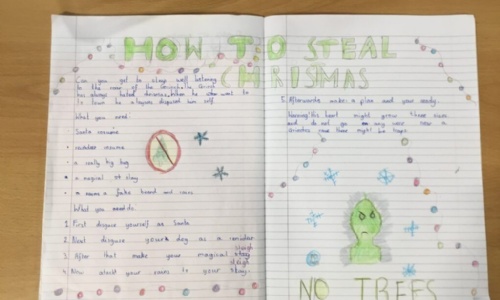 HOW TO STEAL
CHRISMAS
Can you get to sleep well listening
to the roar of the Grinch
has always hated christmas. When he
to town he always disguised him self
What you need
Santa cosume
reindeer cosume
a really big bag
a magical sleigh
a fake beard and
What you needs.
1 First disguise yourself as Santa
2 Next disguise your dog as a reindeer
3 After that make your magical sleigh
4 Now attach your to your sleigh.
5 Afterwards make a plan and your ready.
Warning: His heart might grow three sizes
and do not go any near a
Grinches there might be traps.
NO TREES